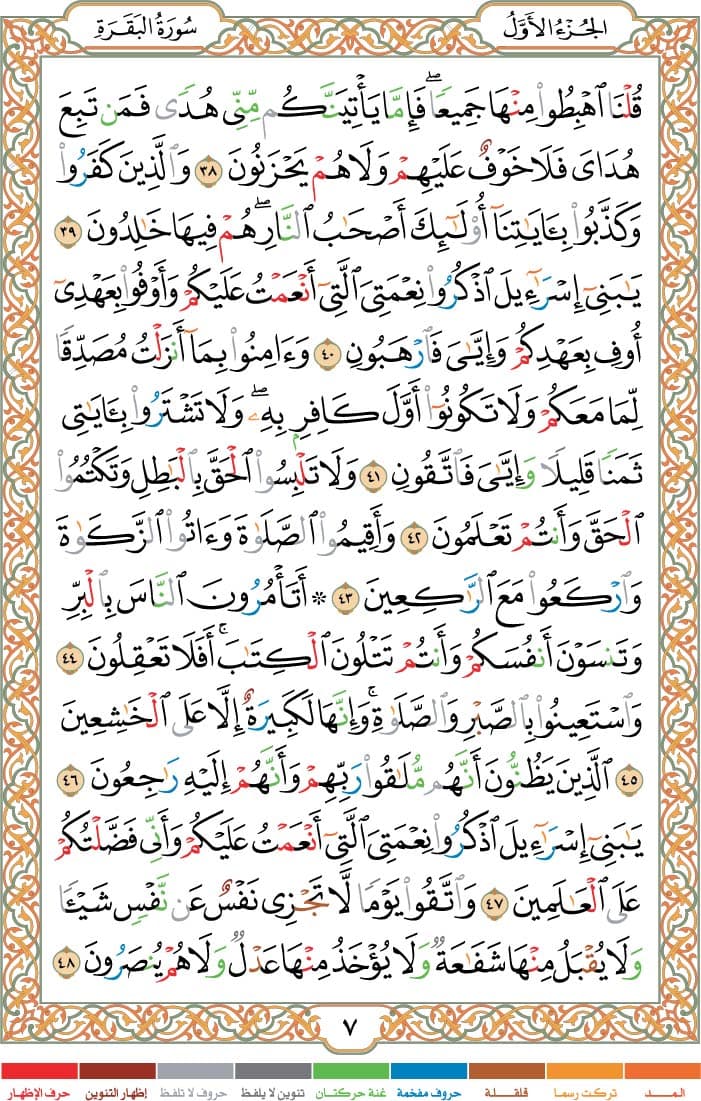 الجُزْءُ الأَوَّلُ
سُورَةُ البَقَرَةِ
قُلْنَا ٱهْبِطُوا۟ مِنْهَا جَمِيعًۭا ۖ فَإِمَّا يَأْتِيَنَّكُم مِّنِّى هُدًۭى فَمَن تَبِعَ
هُدَاىَ فَلَا خَوْفٌ عَلَيْهِمْ وَلَا هُمْ يَحْزَنُونَ ٣٨ وَٱلَّذِينَ كَفَرُوا۟
وَكَذَّبُوا۟ بِـَٔايَـٰتِنَآ أُو۟لَـٰٓئِكَ أَصْحَـٰبُ ٱلنَّارِ ۖ هُمْ فِيهَا خَـٰلِدُونَ ٣٩
يَـٰبَنِىٓ إِسْرَـٰٓءِيلَ ٱذْكُرُوا۟ نِعْمَتِىَ ٱلَّتِىٓ أَنْعَمْتُ عَلَيْكُمْ وَأَوْفُوا۟ بِعَهْدِىٓ
أُوفِ بِعَهْدِكُمْ وَإِيَّـٰىَ فَٱرْهَبُونِ ٤٠ وَءَامِنُوا۟ بِمَآ أَنزَلْتُ مُصَدِّقًۭا
لِّمَا مَعَكُمْ وَلَا تَكُونُوٓا۟ أَوَّلَ كَافِرٍۭ بِهِۦ ۖ وَلَا تَشْتَرُوا۟ بِـَٔايَـٰتِى
ثَمَنًۭا قَلِيلًۭا وَإِيَّـٰىَ فَٱتَّقُونِ ٤١ وَلَا تَلْبِسُوا۟ ٱلْحَقَّ بِٱلْبَـٰطِلِ وَتَكْتُمُوا۟
ٱلْحَقَّ وَأَنتُمْ تَعْلَمُونَ ٤٢ وَأَقِيمُوا۟ ٱلصَّلَوٰةَ وَءَاتُوا۟ ٱلزَّكَوٰةَ
وَٱرْكَعُوا۟ مَعَ ٱلرَّٰكِعِينَ ٤٣ ۞ أَتَأْمُرُونَ ٱلنَّاسَ بِٱلْبِرِّ
وَتَنسَوْنَ أَنفُسَكُمْ وَأَنتُمْ تَتْلُونَ ٱلْكِتَـٰبَ ۚ أَفَلَا تَعْقِلُونَ ٤٤
وَٱسْتَعِينُوا۟ بِٱلصَّبْرِ وَٱلصَّلَوٰةِ ۚ وَإِنَّهَا لَكَبِيرَةٌ إِلَّا عَلَى ٱلْخَـٰشِعِينَ
٤٥ ٱلَّذِينَ يَظُنُّونَ أَنَّهُم مُّلَـٰقُوا۟ رَبِّهِمْ وَأَنَّهُمْ إِلَيْهِ رَٰجِعُونَ ٤٦
يَـٰبَنِىٓ إِسْرَـٰٓءِيلَ ٱذْكُرُوا۟ نِعْمَتِىَ ٱلَّتِىٓ أَنْعَمْتُ عَلَيْكُمْ وَأَنِّى فَضَّلْتُكُمْ
عَلَى ٱلْعَـٰلَمِينَ ٤٧ وَٱتَّقُوا۟ يَوْمًۭا لَّا تَجْزِى نَفْسٌ عَن نَّفْسٍۢ شَيْـًۭٔا
وَلَا يُقْبَلُ مِنْهَا شَفَـٰعَةٌۭ وَلَا يُؤْخَذُ مِنْهَا عَدْلٌۭ وَلَا هُمْ يُنصَرُونَ ٤٨
٧
المـــد تركت رسما قلقلة حروف مفخمة غنة حركتان تنوين لا يلفظ حروف لا تلفظ إظهار التنوين حرف الإظهار